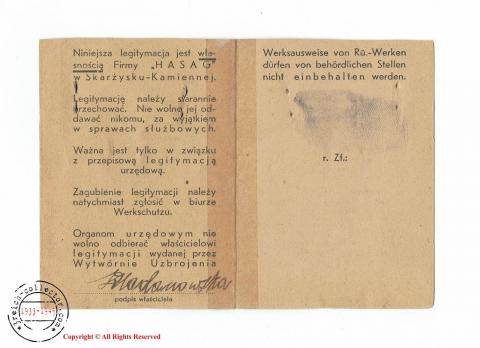 Niniejsza legitymacja jest wła-
snością Firmy „HASAG"
w Skarżysku-Kamiennej.
Legitymację należy starannie
przechować. Nie wolno jej od-
dawać nikomu, za wyjątkiem
w sprawach służbowych.
Ważna jest tylko w związku
z przepisową legitymacją
urzędową.
Zagubienie legitymacji należy
natychmiast zgłosić w biurze
Werkschutzu.
Organom urzędowym nie
wolno odbierać właścicielowi
legitymacji wydanej przez
Wytwórnie Uzbrojenia
podpis właściciela
Werksausweise von Rü.-Werken
dürfen von behördlichen Stellen
nicht einbehalten werden.
r. Zł.:
jreich-collector.com
1933-1945
Copyright © All Rights Reserved